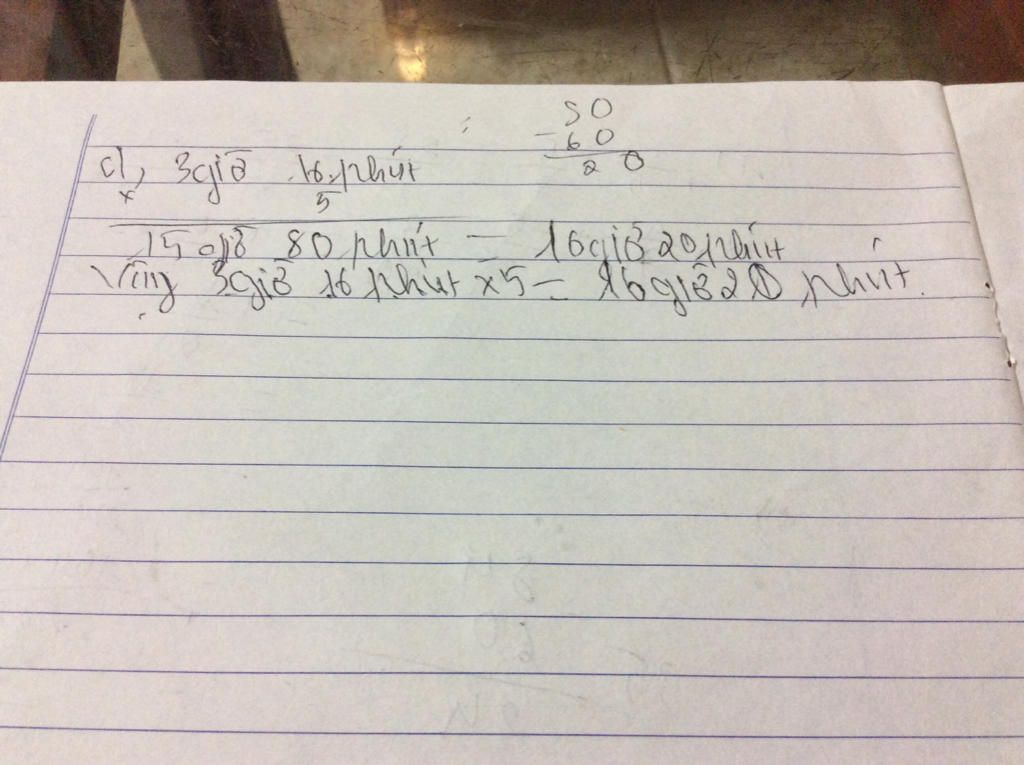 80
- 60
20
d, 3giờ 16 phút
x 5
15 giờ 80 phút = 16giờ 20 phút
Vậy 3giờ 16 phút x 5 = 16giờ 20 phút.